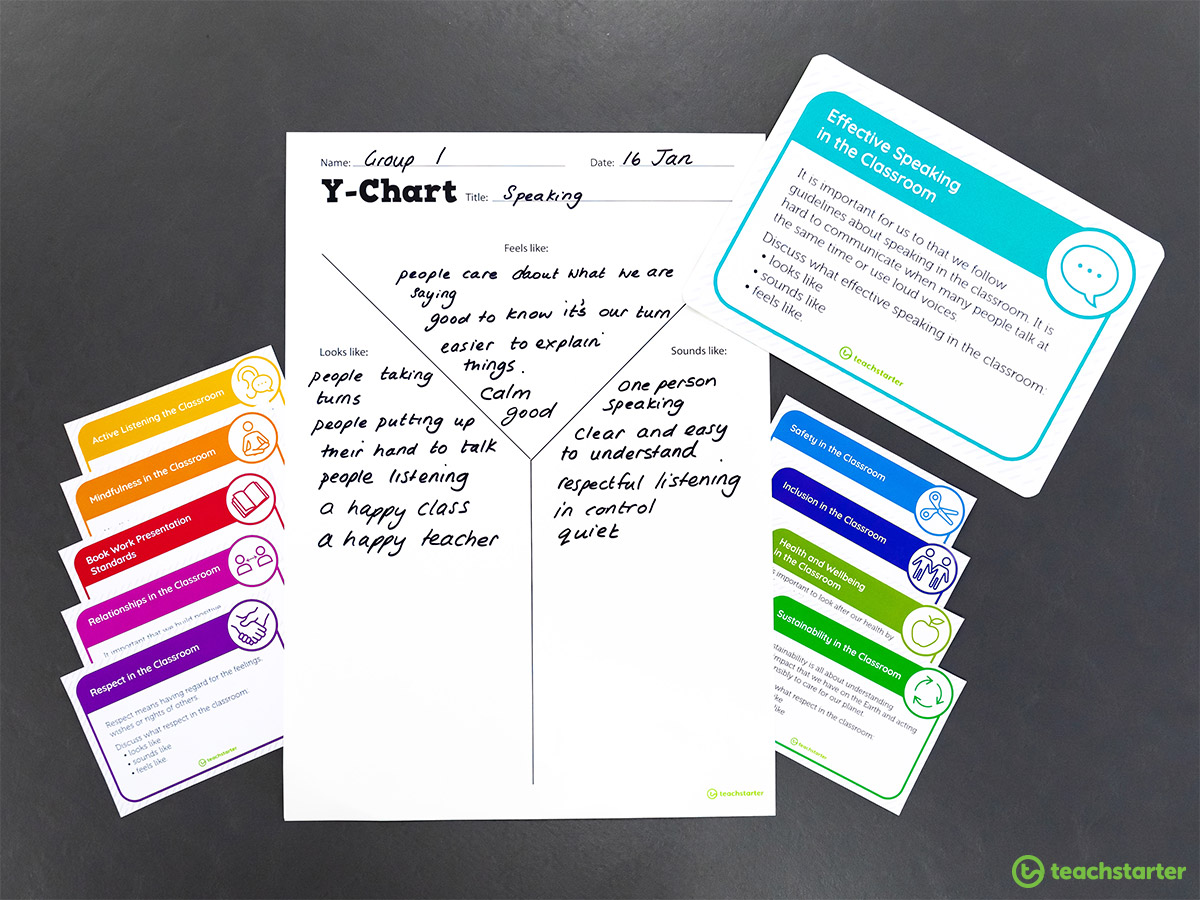 Name: Group 1 Date: 16 Jan
Y-Chart Title: Speaking
Feels like:
people care about what we are
saying
good to know it's our turn
easier to explain
things.
calm
good
Looks like:
people taking
turns
people putting up
their hand to talk
people listening
a happy class
a happy teacher
Sounds like:
one person
speaking
clear and easy
to understand.
respectful listening
in control
quiet
teachstarter
Effective Speaking
in the Classroom
It is important for us to that we follow
guidelines about speaking in the classroom. It is
hard to communicate when many people talk at
the same time or use loud voices.
Discuss what effective speaking in the classroom:
• looks like
• sounds like
• feels like.
teachstarter
Active Listening the Classroom
Mindfulness in the Classroom
Book Work Presentation
Standards
Relationships in the Classroom
It important that we build positive
Respect in the Classroom
Respect means having regard for the feelings,
wishes or rights of others.
Discuss what respect in the classroom:
• looks like
• sounds like
• feels like
teachstarter
Safety in the Classroom
Inclusion in the Classroom
Health and Wellbeing
in the Classroom
is important to look after our health by
Sustainability in the Classroom
stainability is all about understanding
impact that we have on the Earth and acting
nsibly to care for our planet.
what respect in the classroom:
like
like
like
teachstarter
teachstarter